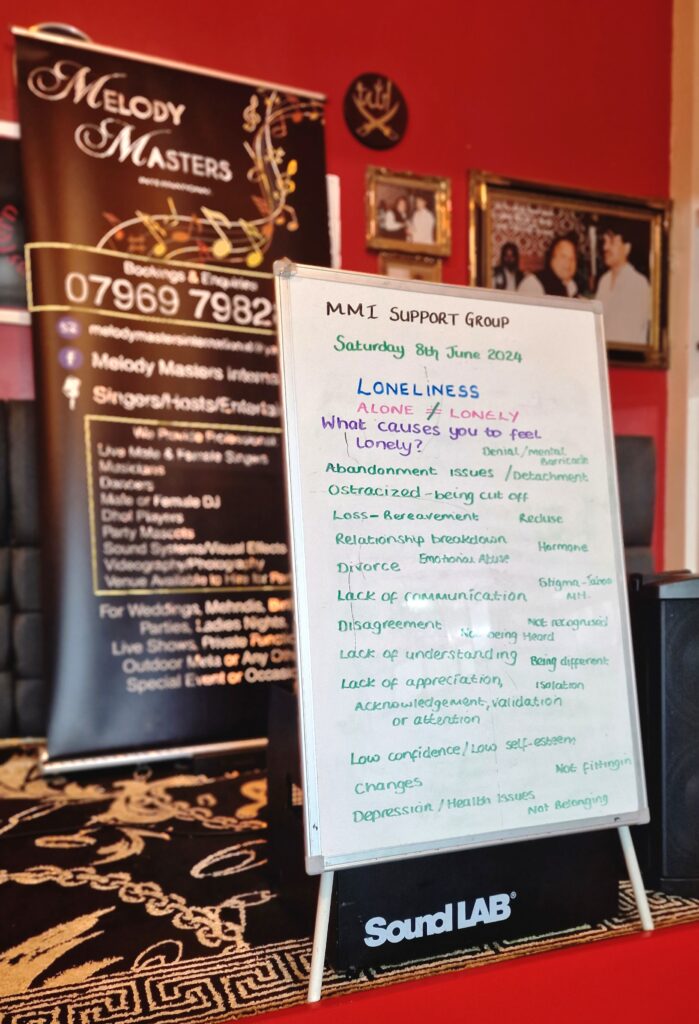 MELODY
MASTERS
INTERNATIONAL
Bookings & Enquiries
07969 7982
melodymastersinternational@y
Melody Masters Interna
Singers/Hosts/Enterta
We Provide Professional
Live Male & Female Singers
Musicians
Dancers
Male or Female DJ
Dhol Players
Party Mascots
Sound Systems/Visual Effects
Videography/Photography
Venue Available to Hire for
For Weddings, Mehndis,
Parties, Ladies Nights,
Live Shows, Private Func
Outdoor Mela or Any
Special Event or Occas
MMI SUPPORT GROUP
Saturday 8th June 2024
LONELINESS
ALONE ≠ LONELY
What causes you to feel
lonely?
Denial/mental
Barricade
Abandonment issues / Detachment
Ostracized - being cut off
Loss - Bereavement Recluse
Relationship breakdown Hormone
Divorce Emotional Abuse
Lack of communication Stigma - Taboo
MH.
Disagreement Not recognised
Not being Heard
Lack of understanding Being different
Lack of appreciation, Isolation
Acknowledgement, validation
or attention
Low confidence/Low self-esteem
Not fitting in
Changes
Depression / Health Issues
Not Belonging
Sound LAB®